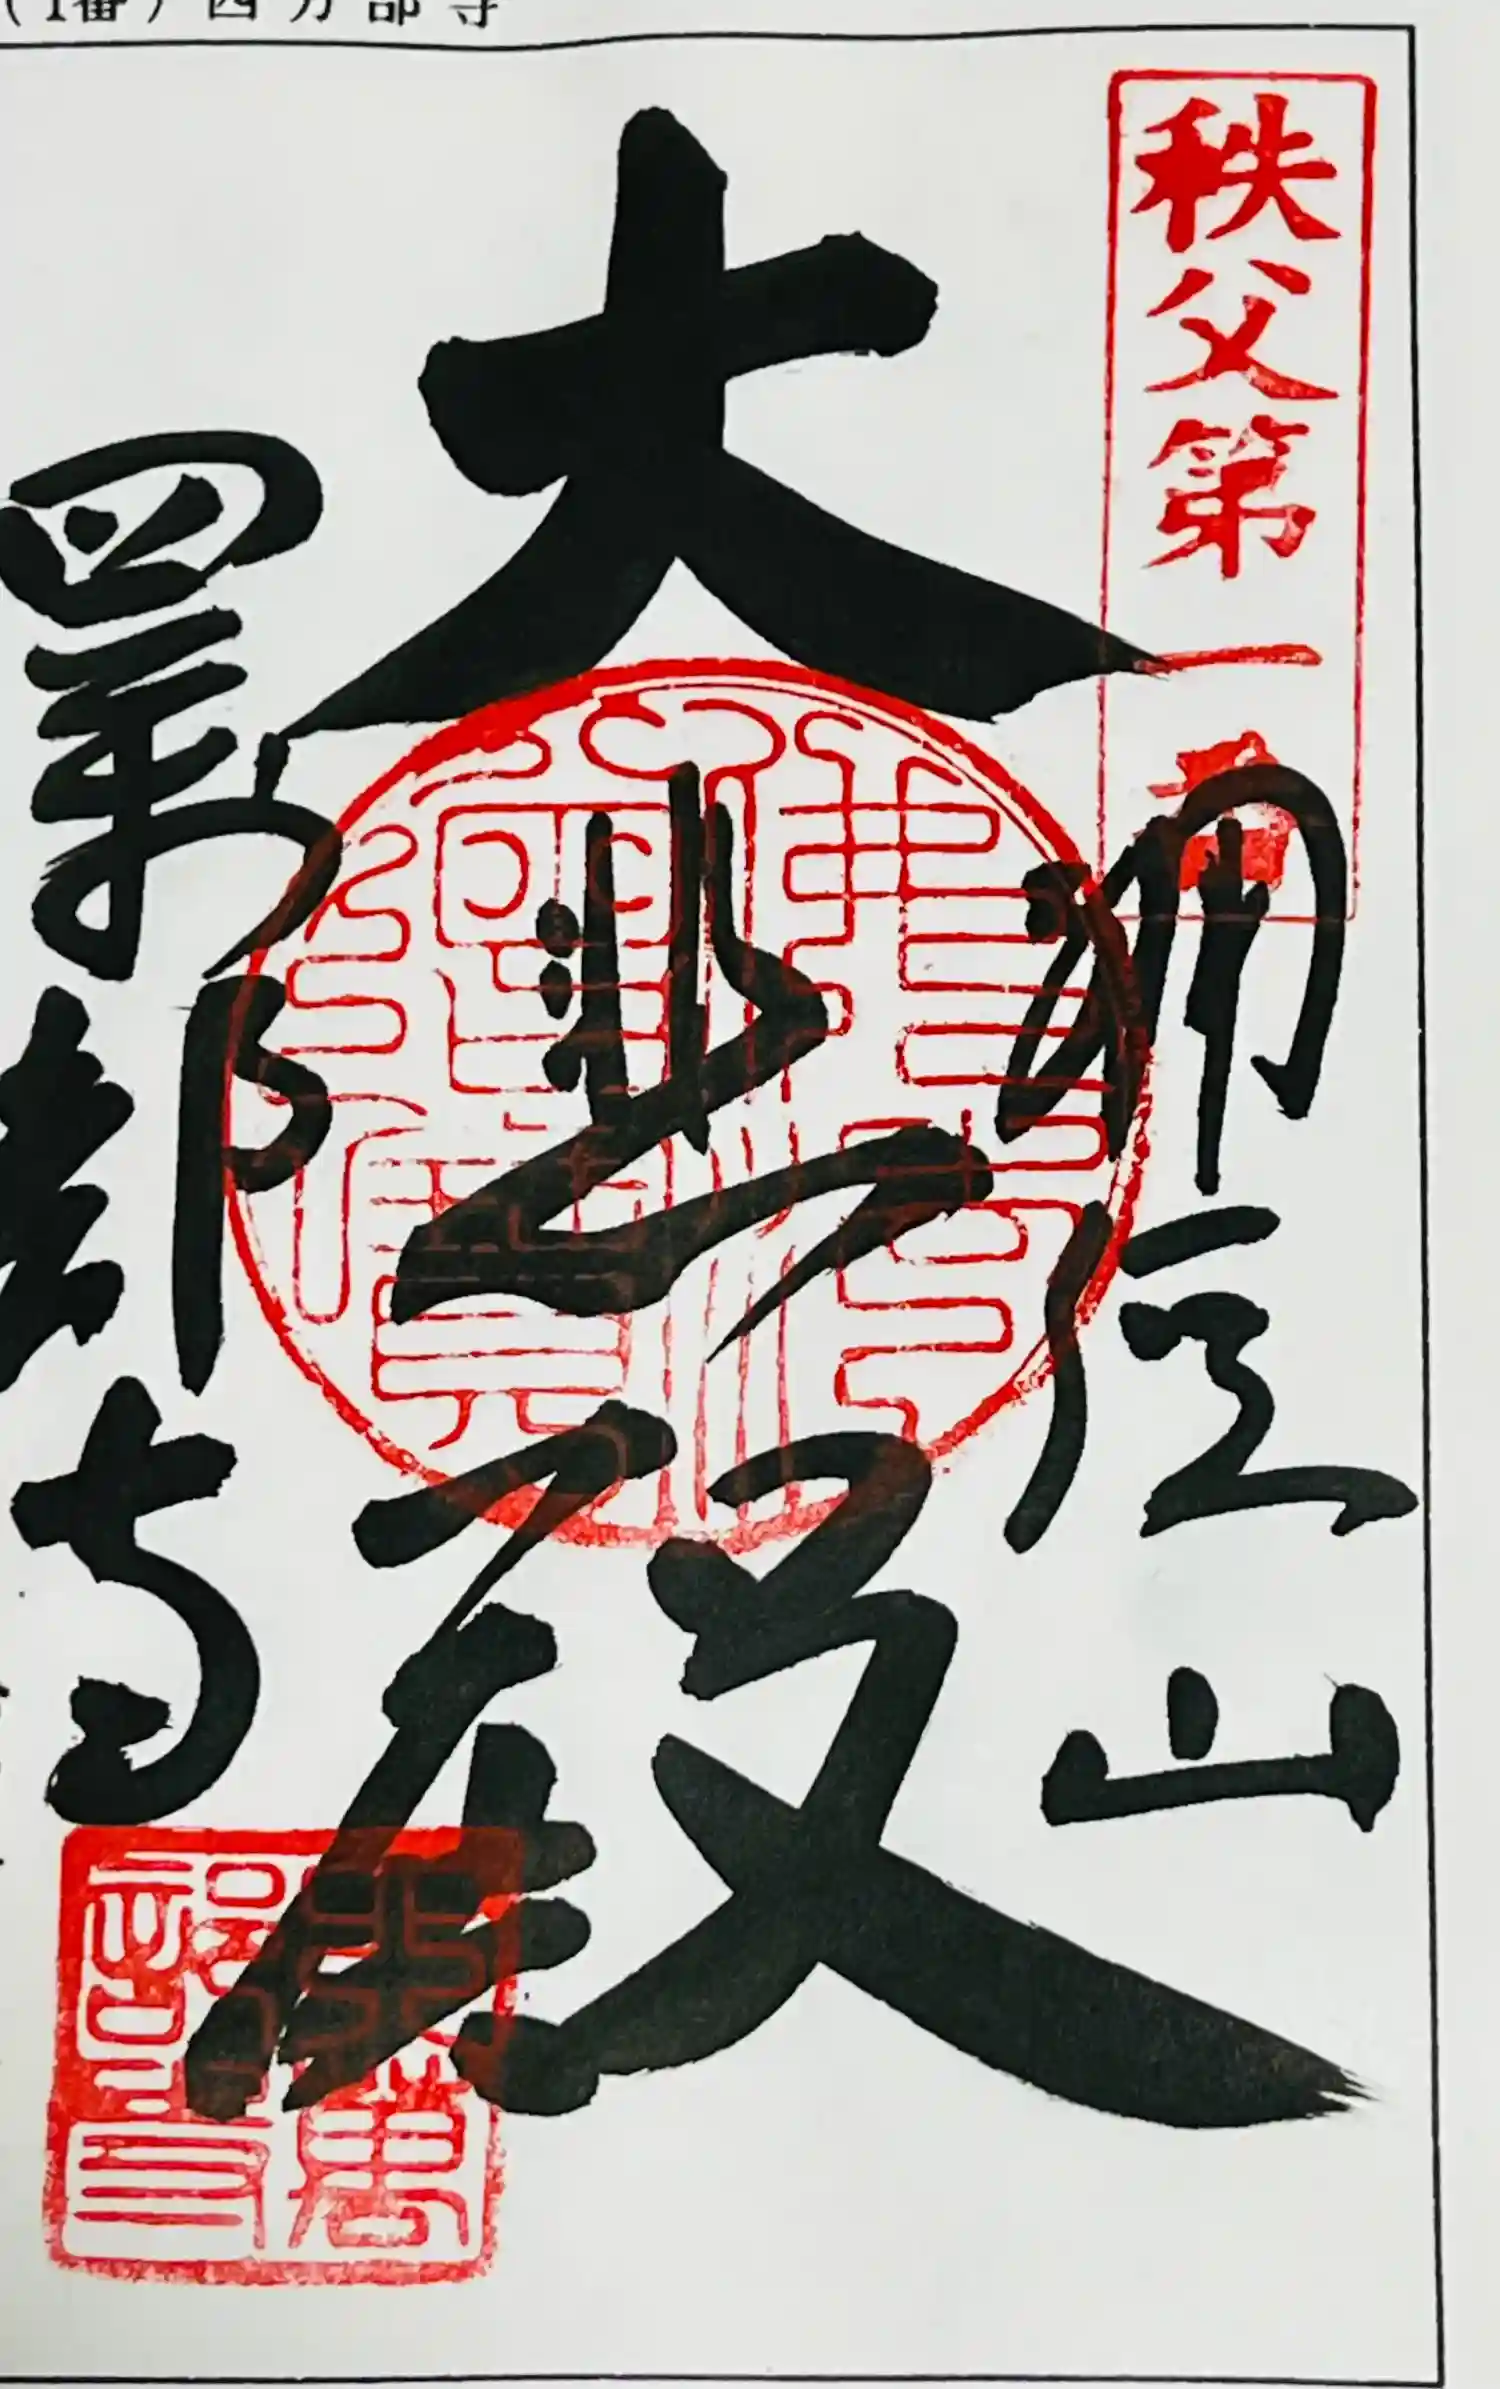 (1番) 四万部寺
秩父第一番
誦経山
大悲殿
四萬部寺